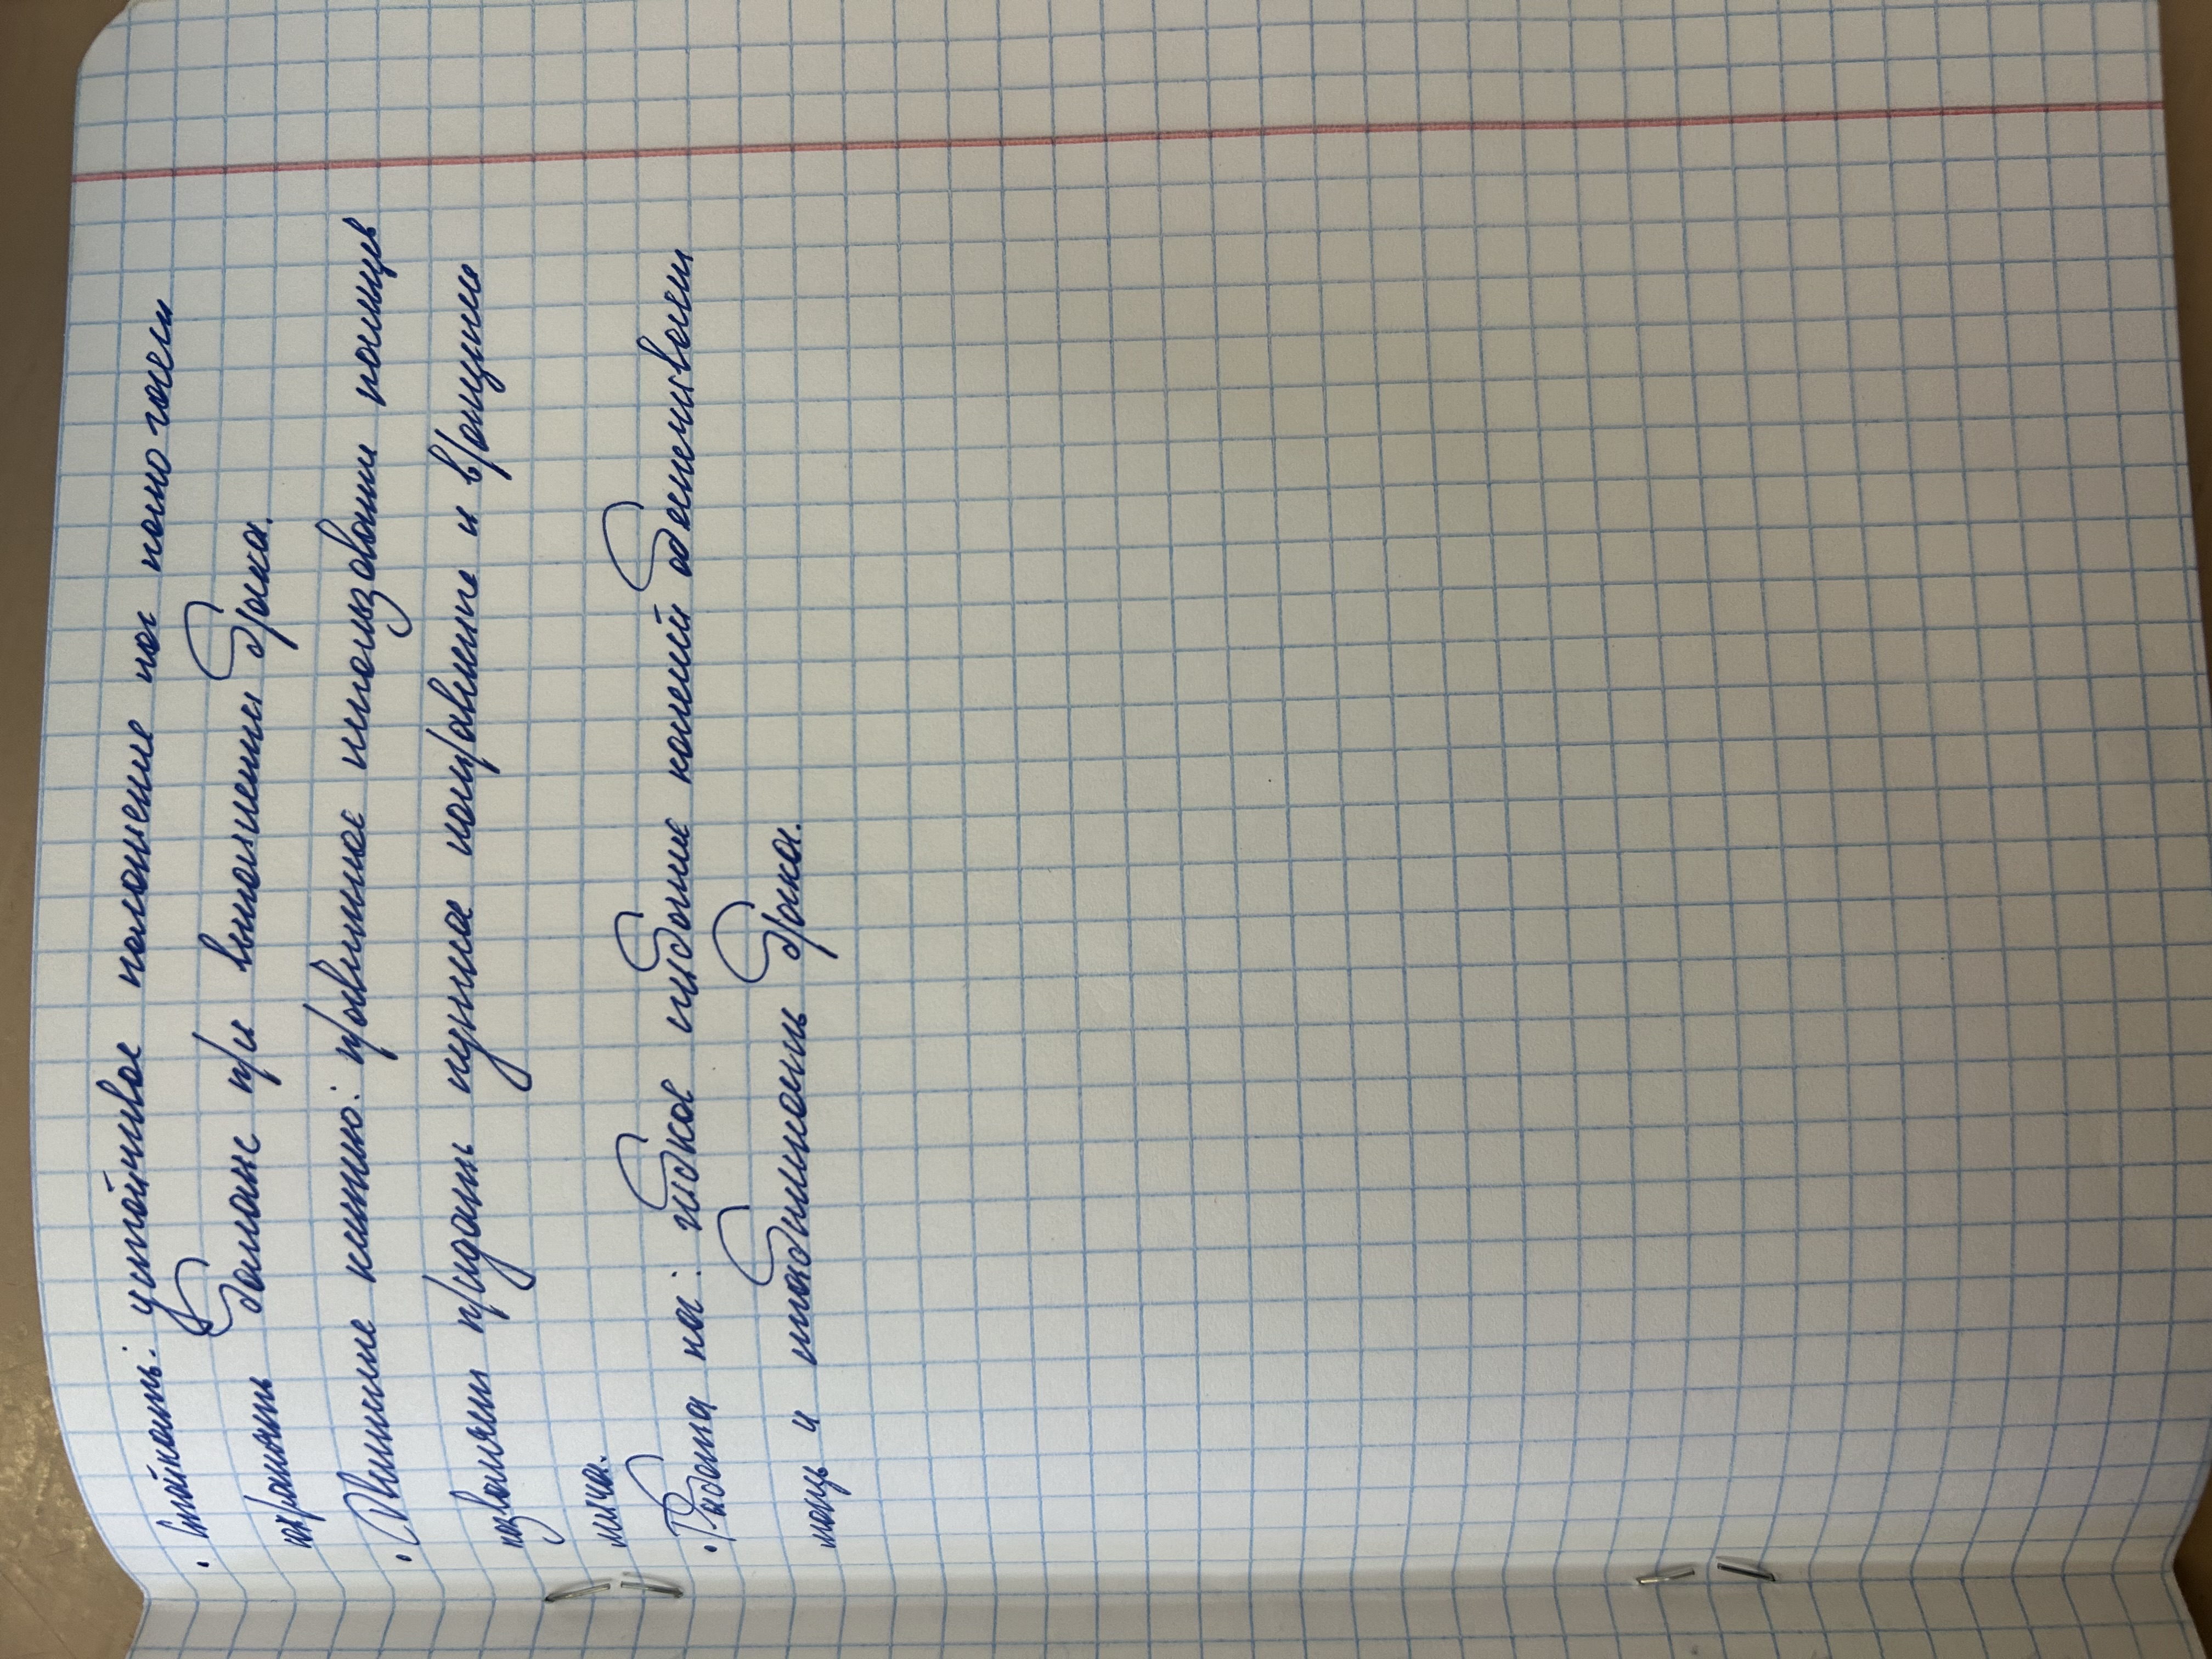 · Стойкость: устойчивое положение ног помогает
сохранить баланс при выполнении броска.
· Движение кистью: правильное использовании пальцев
позволяет придать нужное направление и вращение
мяча.
· Работа ног: гибкое сгибание коленей обеспечивает
мощь и стабильность броска.